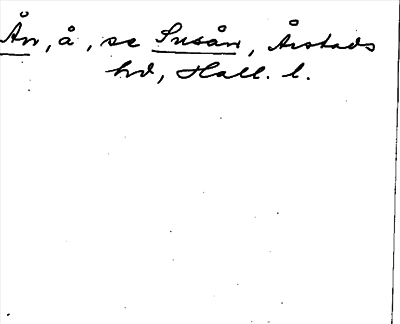 Ån, å, se Suseån, Årstads
hd, Hall. l.